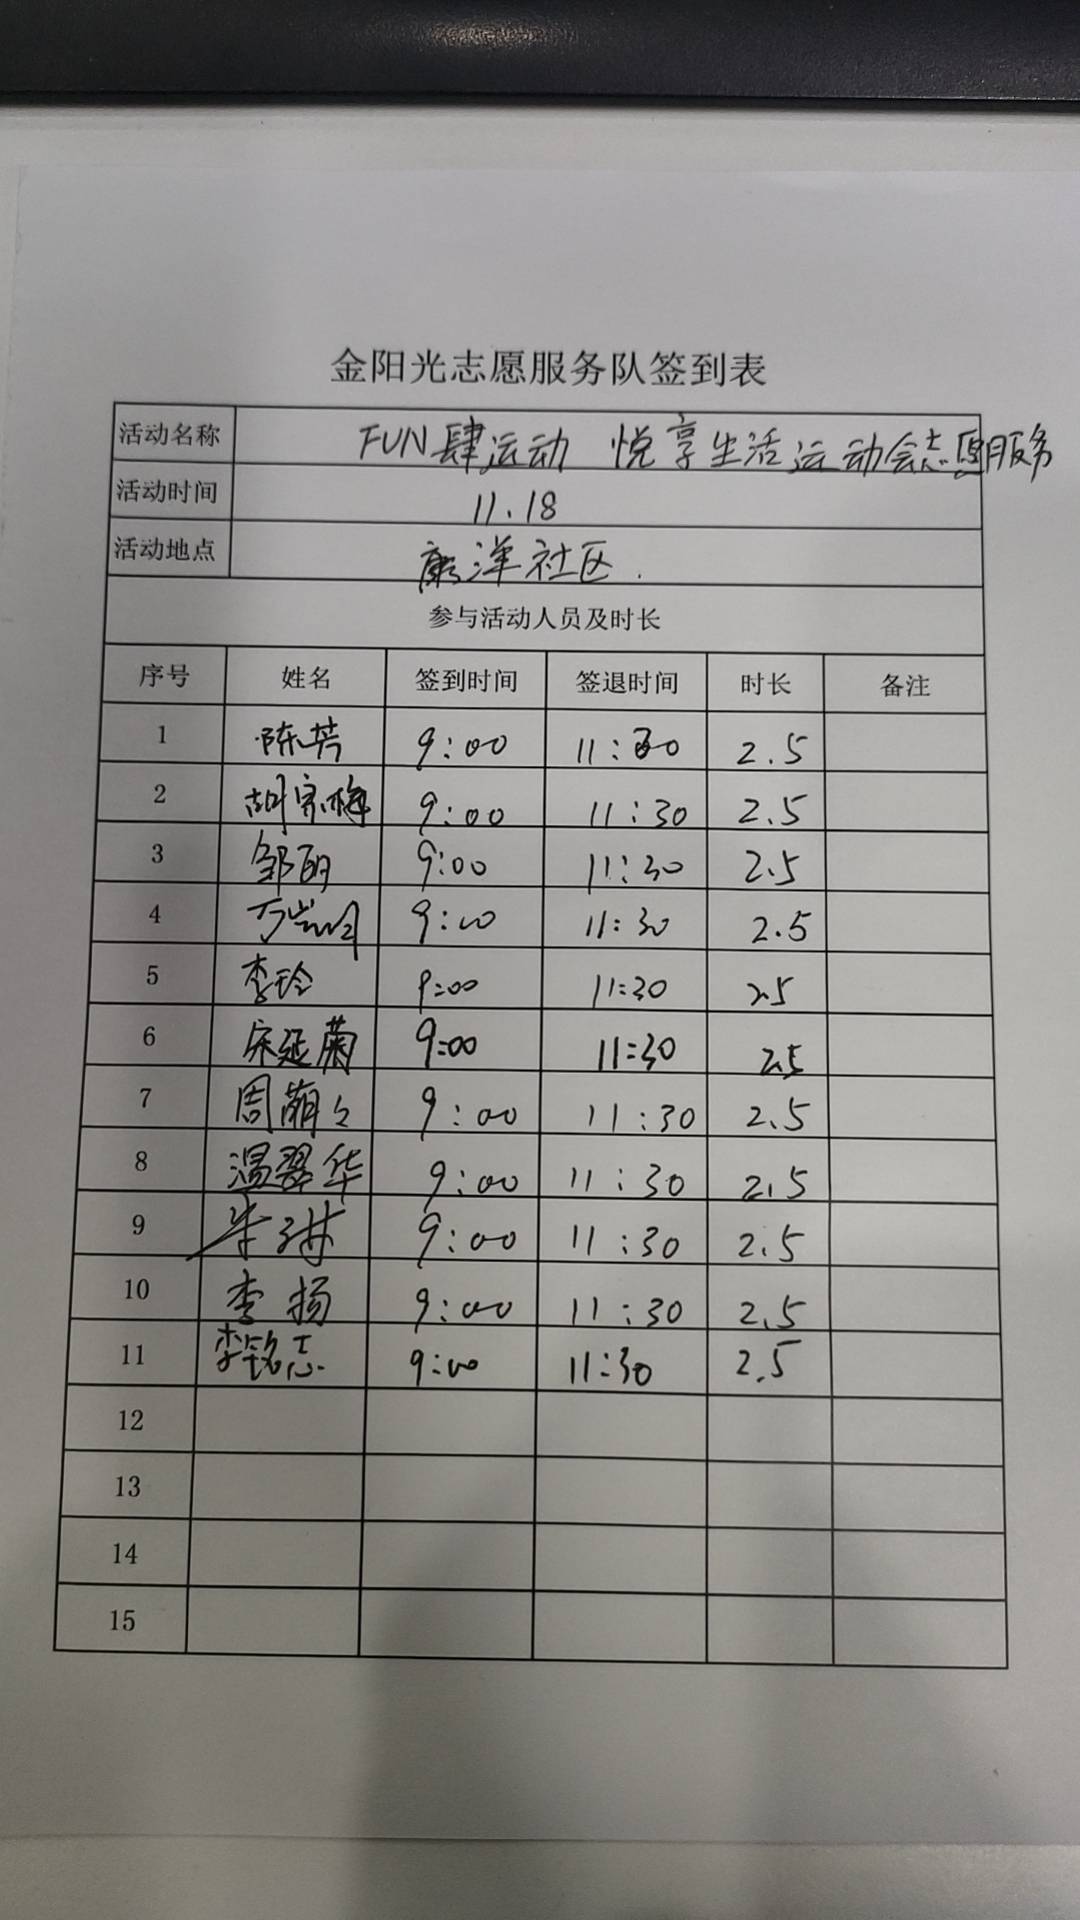 金阳光志愿服务队签到表
活动名称 FUN肆运动 悦享生活运动会志愿服务
活动时间 11.18
活动地点 康洋社区.
参与活动人员及时长
序号 姓名 签到时间 签退时间 时长 备注
1 陈芳 9:00 11:30 2.5
2 胡家梅 9:00 11:30 2.5
3 邹丽 9:00 11:30 2.5
4 9:00 11:30 2.5
5 李玲 9:00 11:30 2.5
6 宋延菊 9:00 11:30 2.5
7 周萌々 9:00 11:30 2.5
8 温翠华 9:00 11:30 2.5
9 9:00 11:30 2.5
10 李扬 9:00 11:30 2.5
11 李铭志 9:00 11:30 2.5
12
13
14
15